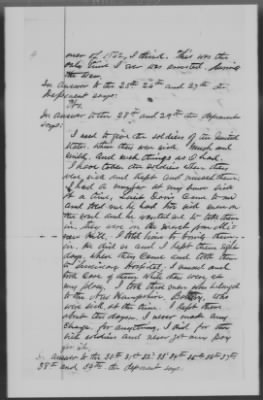 mer of 1862, I think. This was the
only time I ever was arrested during
the War.
In Answer to the 25th 26th and 27th the
deponent says:
No.
In answer to the 28th and 29th the deponent
says:
I used to give the soldiers of the United
States when they were sick bread and
milk. And such things as I had.
I have taken sick soldiers when they
were sick and kept and nursed them.
I had a at my house sick
at a time, Louis Davis came to me
and told me he had five sick men on
the road and he wanted me to take them
in, they were on the march from
Hill. I told him to bring them
in. He did so and I kept them eight
days, when they came and took them
to Seminary Hospital, I nursed and
took care of them while they were at
my place. I took three men who belonged
to the New Hampshire Battery, who
were sick at the time. I kept them
about ten days. I never made any
charge for anything, I did for the
sick soldiers and never got any pay
for it.
In answer to the 30th 31st 32d 33d 34th 35th 36th 37th
38th and 39th the deponent says.